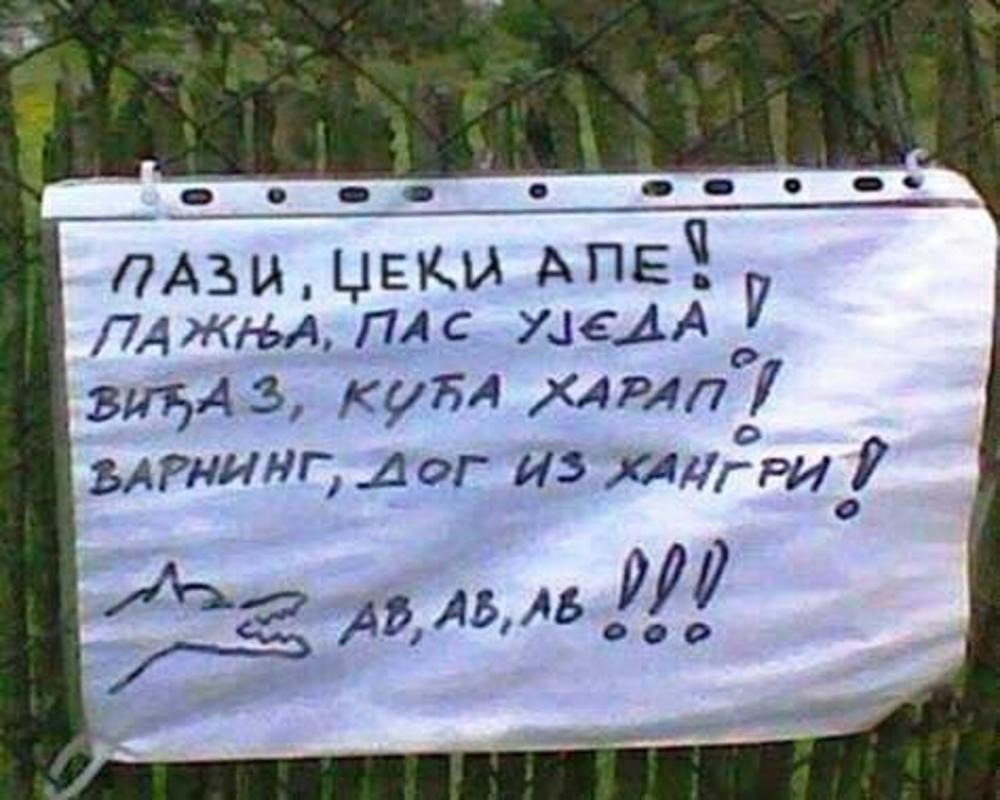 ПАЗИ, ЏЕКИ АПЕ!
ПАЖЊА, ПАС УЈЕДА!
ВИЂАЗ, КУЋА ХАРАП!
ВАРНИНГ, ДОГ ИЗ ХАНГРИ!
АВ, АВ, АВ!!!